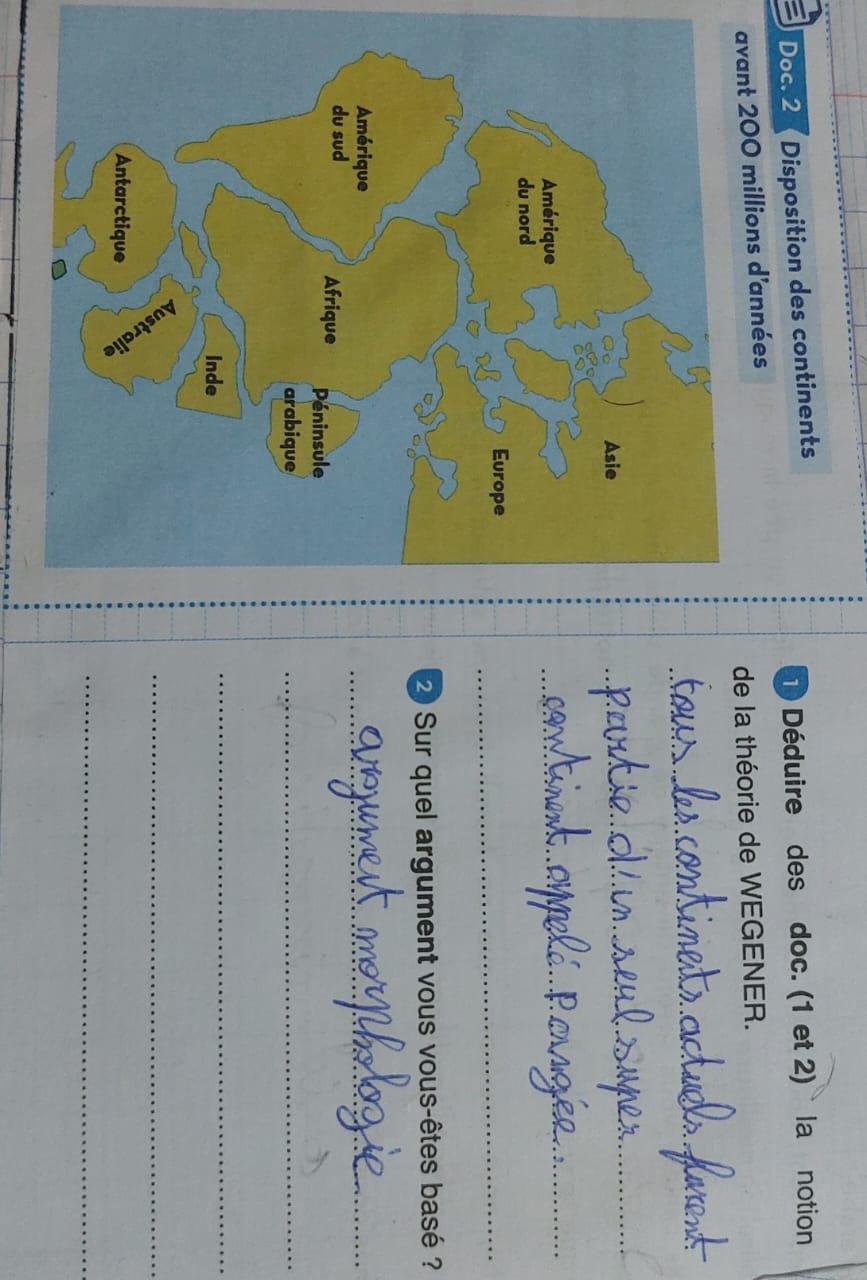 Doc. 2 Disposition des continents
avant 200 millions d'années
Asie
Amérique
du nord
Europe
Amérique
du sud
Afrique
Péninsule
arabique
Inde
Australie
Antarctique
1 Déduire des doc. (1 et 2) la notion
de la théorie de WEGENER.
tous les continents actuels furent
partie d'un seul super
continent appelé Pangée.
2 Sur quel argument vous vous-êtes basé ?
argument morphologie